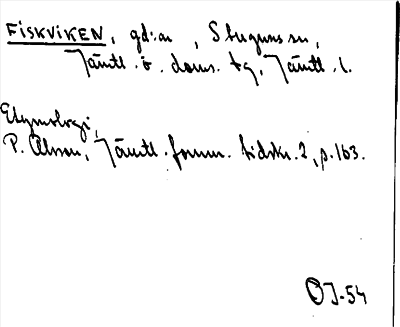 FISKVIKEN, gd:ar, Stuguns sn,
Jämtl. ö. doms. tg, Jämtl. l.
Etymologi,
P. Olsson, Jämtl. fornm. tidskr. 2, p. 163.
OJ-54